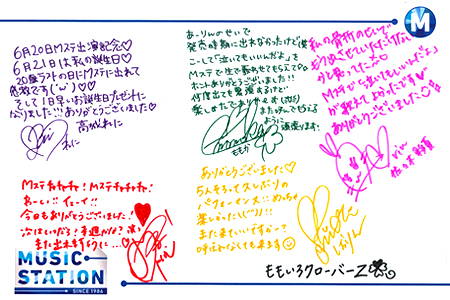 6月20日Mステ出演記念♡
6月21日は私の誕生日♡
20歳ラストの日にMステに出れて
感激です(´ω`)♡♡
そして1日早いお誕生日プレゼントに
なりました!!ありがとうございました♡
高城れに
れに
あーりんのせいで
発売時期に出れなかったけど
こーして「泣いてもいいんだよ」を
Mステで生で歌わせてもらえて
ホントありがとうございます!!
何度出ても緊張するけど
楽しかったでありますっ
また呼んでもらえる
ように
頑張ります!
ももか
私の骨折のせいで
Mステで「泣いてもいいんだよ」
が歌えてよかったです
ありがとうございました
佐々木彩夏
Mステチャチャチャ!Mステチャチャチャ!
おーいぇい!イェーイ!!
今日もありがとうございました!
次はいつだ!来週かな?
また出れますように…
ありがとうございました♡
5人そろってひさしぶりの
パフォーマンス!!めっちゃ
楽しかった
また来ていいですかー?
呼ばれなくても来ます
しおりん
ももいろクローバーZ
M
MUSIC
STATION
SINCE 1986